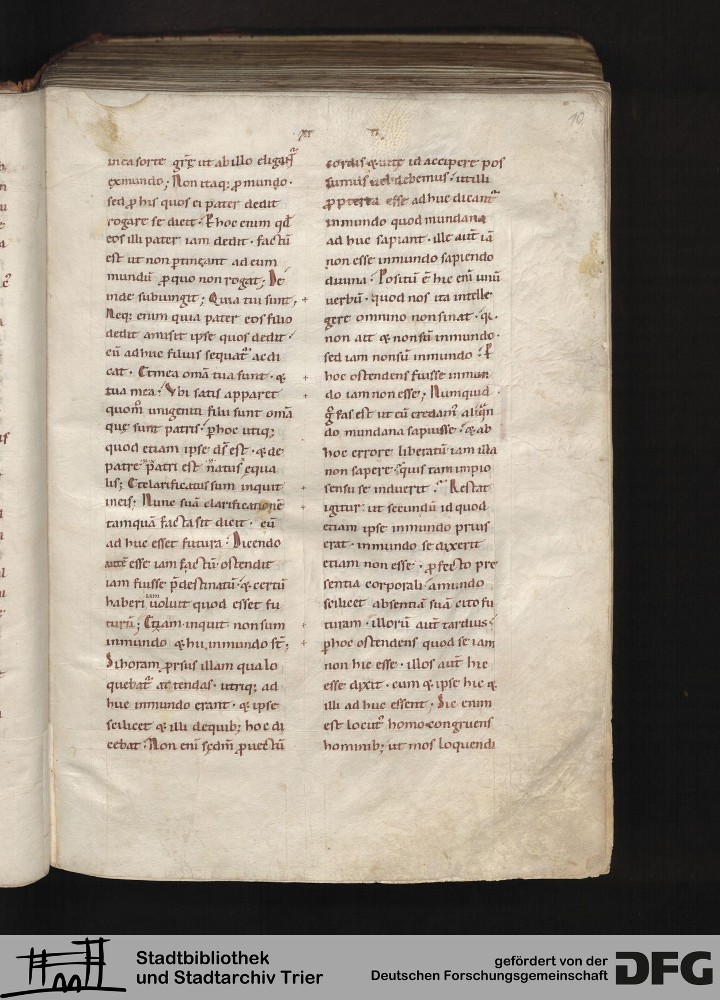 10
XI II
in ea sorte grę̄ ut ab illo eligant᷑
ex mundo; Non itaq; ꝓ mundo·
sed ꝓ his quos ei pater dedit
rogare se dicit· Ꝑ hoc enim qđ
eos illi pater iam dedit· factū
est ut non ꝑtineant ad eum
mundū ꝓ quo non rogat; De
inde subiungit; Quia tui sunt;
Neq; enim quia pater eos filio
dedit amisit ipse quos dedit·
cū adhuc filius sequat᷑ ac di
cat· Et mea om̄a tua sunt· &
tua mea; Vbi satis apparet
quom̄ unigeniti filii sunt om̄a
quę sunt patris· ꝑ hoc utiq;
quod etiam ipse ds̄ est· & de
patre patri est natus ęqua
lis; Et clarificatus sum inquit
in eis; Nunc suā clarificationē
tamquā facta sit dicit· cū
adhuc esset futura; Dicendo
autē esse iam factū· ostendit
iam fuisse p̄destinatū· & certū
haberi uoluit quod esset fu
iam
turū; Et iam inquit non sum
in mundo & hi in mundo st̄;
Si horam prorsus illam qua lo
quebat᷑ attendas· utriq; ad
huc in mundo erant· & ipse
scilicet & illi de quib; hoc di
cebat· Non enī scdm̄ ꝓuectū
cordis & uitę id accipere pos
sumus uel debemus· ut illi
ꝓpterea esse adhuc dicant᷑
in mundo quod mundana
adhuc sapiant· ille aut̄ iā
non esse in mundo sapiendo
diuina; Positū ē hic enī unū
uerbū· quod nos ita intelle
gere omnino non sinat· q·
non ait & non sū in mundo·
sed iam non sū in mundo;
hoc ostendens fuisse in mun
do iam non esse; Numquid
g fas est ut eū credam᷑ aliqn̄
do mundana sapuisse· & ab
hoc errore liberatū iam illa
non sapere· quis tam impio
sensu se induerit; Restat
igitur ut secundū id quod
etiam ipse in mundo prius
erat· in mundo se dixerit
etiam non esse· ꝓfecto pre
sentia corporali· a mundo
scilicet absentiā suā cito fu
turam· illorū aut̄ tardius·
ꝑ hoc ostendens quod se iam
non hic esse· illos aut̄ hic
esse dixit· cum & ipse hic &
illi adhuc essent; Sic enim
est locut᷑ homo congruens
hominib; ut mos loquendi
Stadtbibliothek
und Stadtarchiv Trier
gefördert von der
Deutschen Forschungsgemeinschaft
DFG